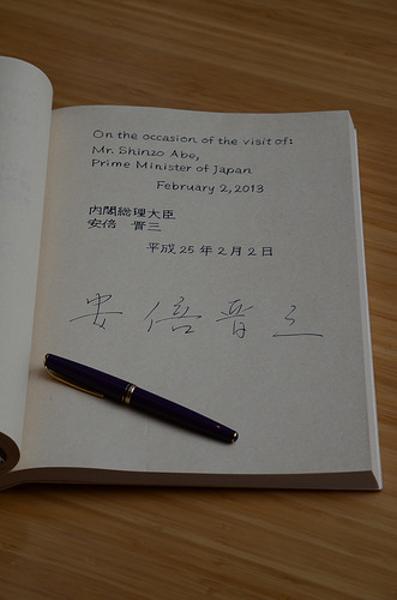 On the occasion of the visit of:
Mr. Shinzo Abe,
Prime Minister of Japan
February 2, 2013
内閣総理大臣
安倍 晋三
平成25年2月2日
安倍晋三